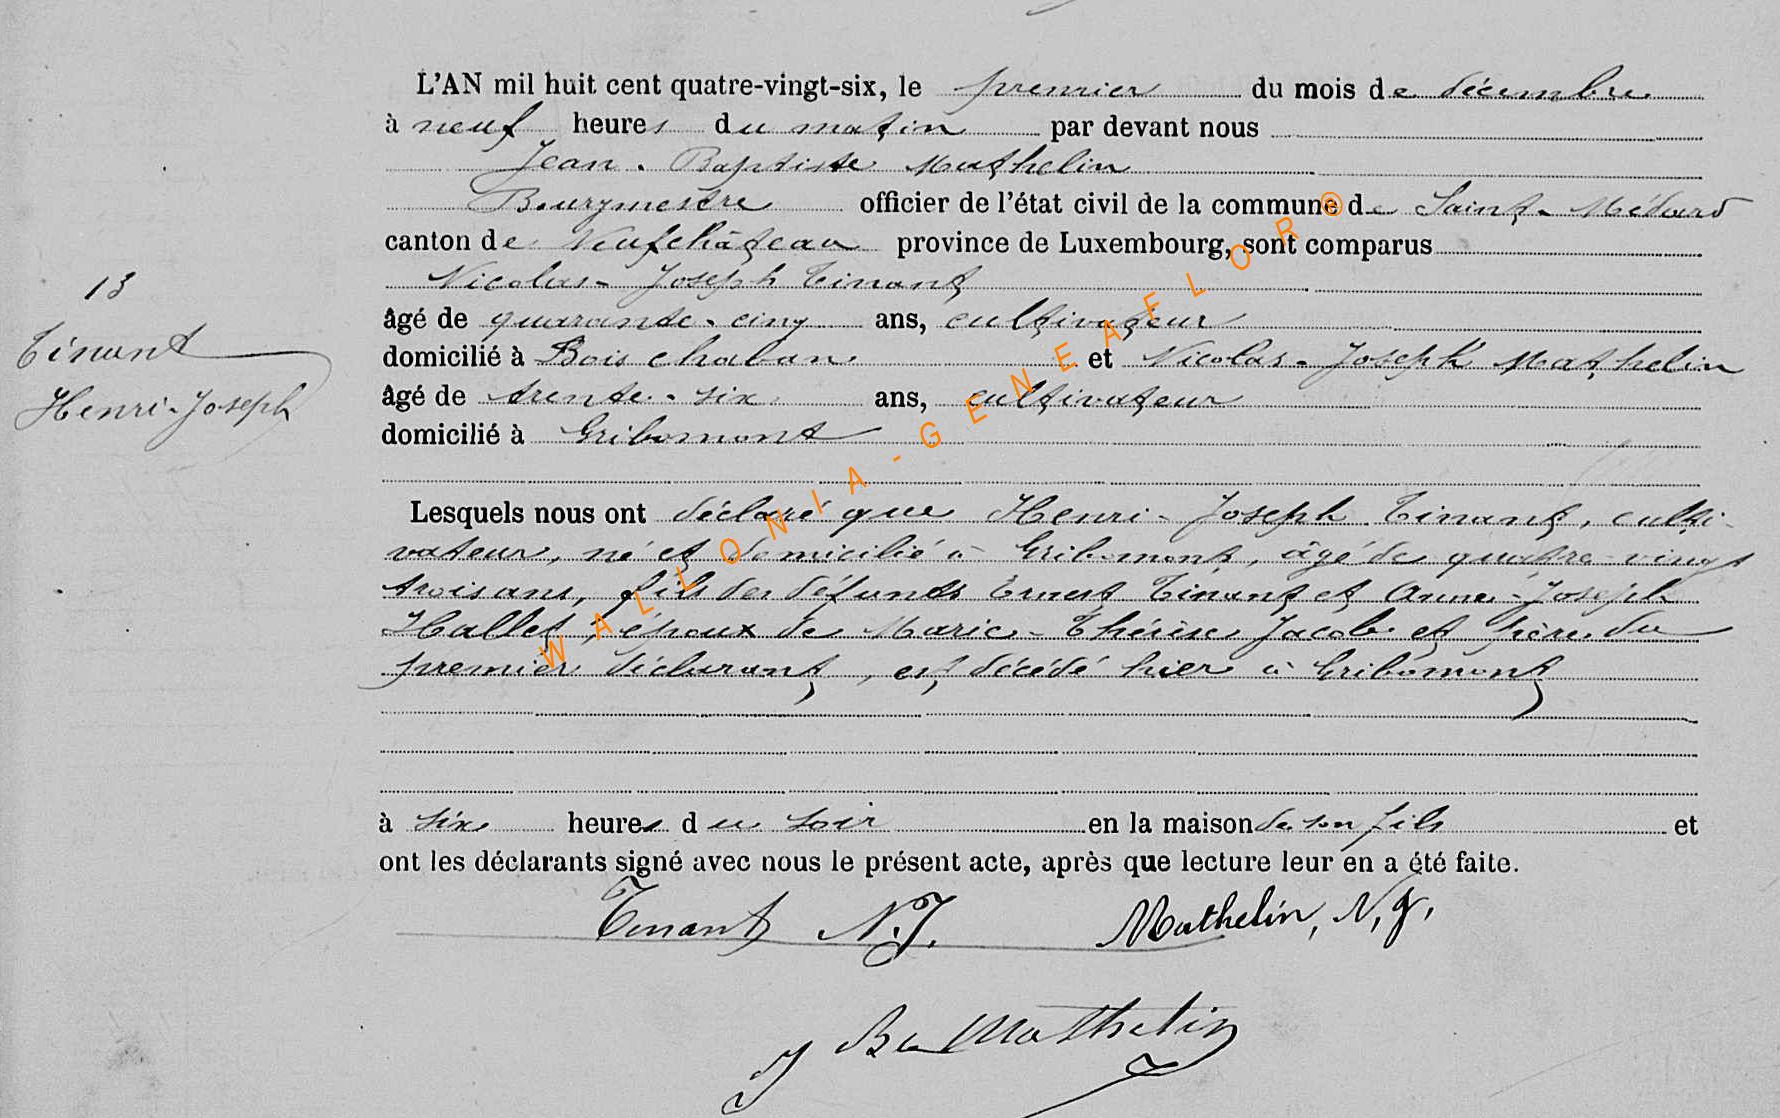 L'AN mil huit cent quatre-vingt-six, le premier du mois de décembre
à neuf heures du matin par devant nous
Jean-Baptiste Mathelin
Bourgmestre officier de l'état civil de la commune de Saint-Médard
canton de Neufchâteau province de Luxembourg, sont comparus
Nicolas-Joseph Tinant
13
âgé de quarante-cinq ans, cultivateur
Tinant
domicilié à Bois chaban et Nicolas-Joseph Mathelin
Henri-Joseph
âgé de trente-six ans, cultivateur
domicilié à Gribomont
Lesquels nous ont déclaré que Henri-Joseph Tinant, culti-
vateur, né et domicilié à Gribomont, âgé de quatre-vingt
trois ans, fils des défunts Ernest Tinant et Anne-Joseph
Hallet, époux de Marie-Thérèse Jacob et père du
premier déclarant, est décédé hier à Gribomont
à six heures du soir en la maison de son fils et
ont les déclarants signé avec nous le présent acte, après que lecture leur en a été faite.
Tinant N.J. Mathelin, N, J,
J Bte Mathelin
WALLONIA-GENEAFLOR®